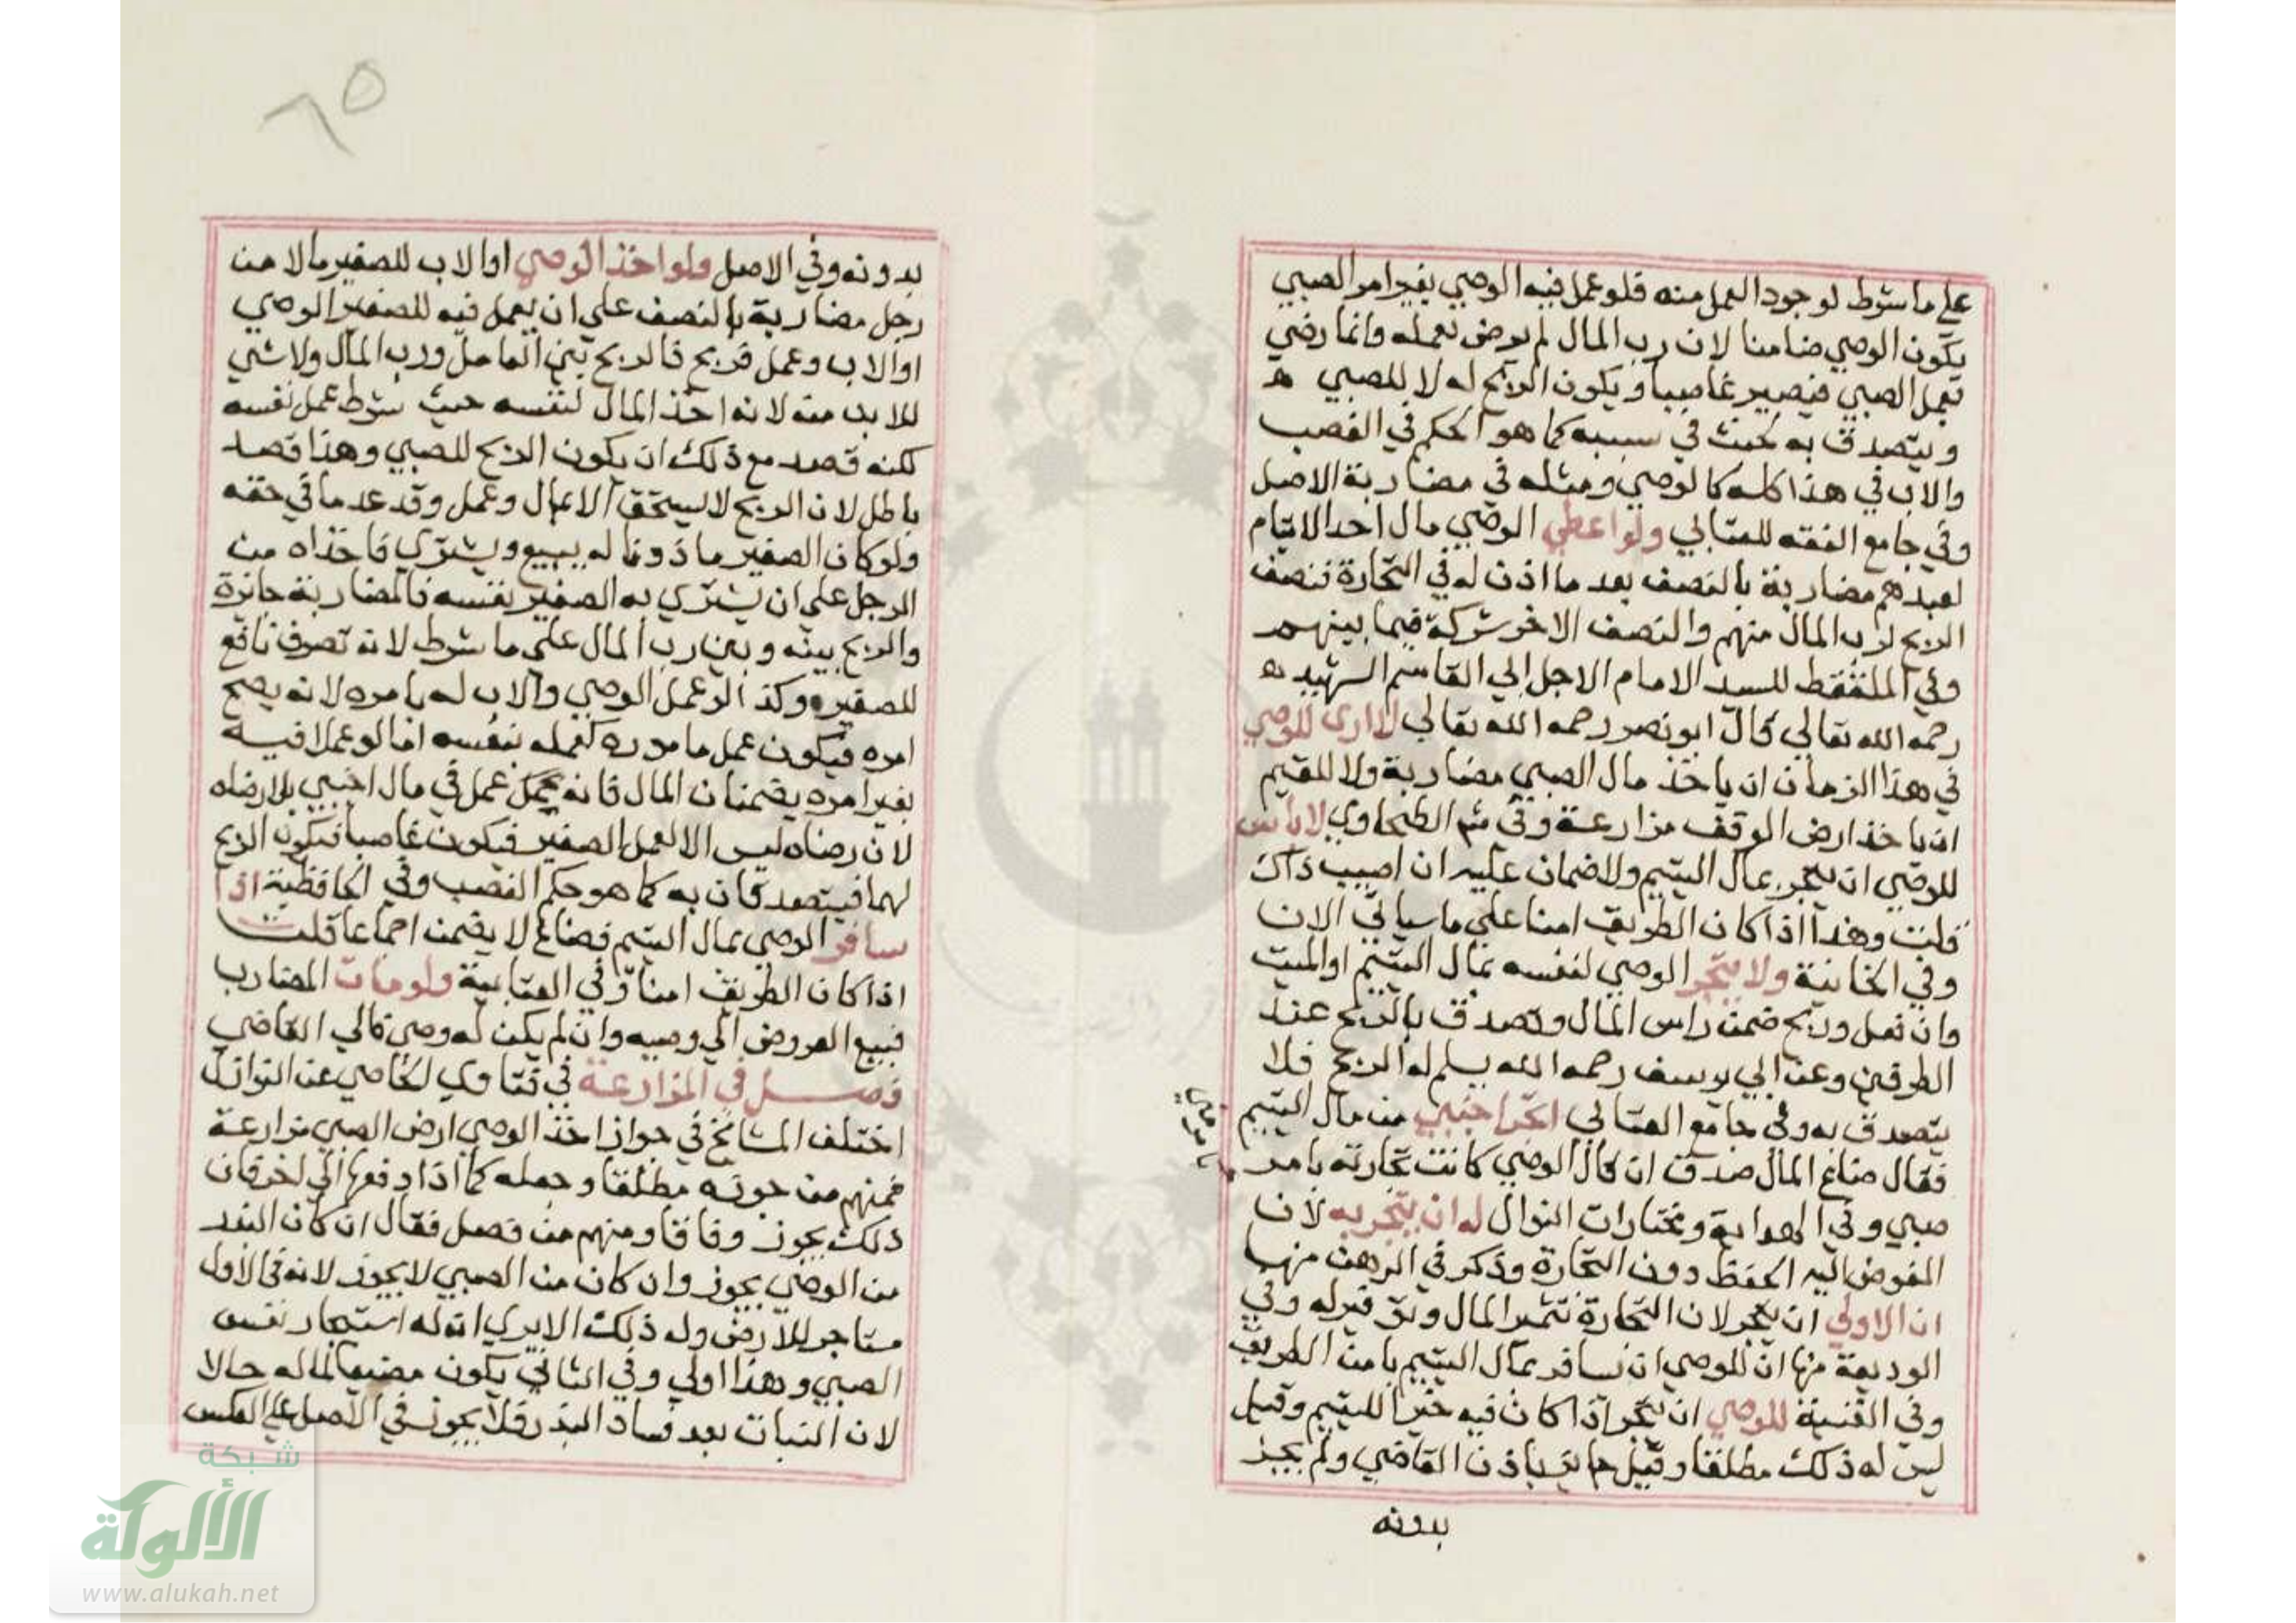 علي ما شرط لوجود العمل منه فلو عمل فيه الوصي بغير امر الصبي
يكون الوصي ضامنا لان رب المال لم يرض بعمله وانما رضي
بعمل الصبي فيصير غاصبا ويكون الربح له لا للصبي
ويتصدق به لخبث في سببه كما هو الحكم في الغصب
والاب في هذا كله كالوصي ومثله في مضاربة الاصل
وفي جامع الفقه للعتابي ولو اعطي الوصي مال احد الايتام
لعبدهم مضاربة بالنصف بعد ما اذن له في التجارة فنصف
الربح لرب المال منهم والنصف الاخر شركة فيما بينهم
وفي الملتقط للسيد الامام الاجل ابي القاسم الشهيد
رحمه الله تعالي قال ابو نصر رحمه الله تعالي لا اري للوصي
في هذا الزمان ان ياخذ مال الصبي مضاربة ولا للقيم
ان ياخذ ارض الوقف مزارعة وفي الطحاوي لا باس
للوصي ان يتجر بمال اليتيم ولا ضمان عليه ان اصيب ذلك
قلت وهذا اذا كان الطريق امنا علي ما سياتي الان
وفي الخانية ولا يتجر الوصي لنفسه بمال اليتيم او الميت
وان فعل وربح ضمن راس المال وتصدق بالربح عند
الطرفين وعند ابي يوسف رحمه الله يسلم له الربح فلا
يتصدق به وفي جامع العتابي اتجر اجنبي من مال اليتيم
فقال ضاع المال صدق ان قال الوصي كانت تجارته بامر
صبي وفي الهداية ومختارات النوال له ان يتجر به لان
المفوض اليه الحفظ دون التجارة وذكر في الرهن منها
ان الاولي ان يتجر لان التجارة تثمير المال وفي
الوديعة منها ان للوصي ان يسافر بمال اليتيم يا من الطريق
وفي القنية للوصي ان يتجر اذا كان فيه خير لليتيم وقيل
ليس له ذلك مطلقا وقيل جائز باذن القاضي ولم يجز
بدونه
٦٥
بدونه وفي الاصل ولو اخذ الوصي او الاب للصغير مالا من
رجل مضاربة بالنصف علي ان يعمل فيه للصغير الوصي
او الاب وعمل فربح فالربح بين العامل ورب المال ولا شي
للابن منه لانه اخذ المال لنفسه حيث شرط عمل نفسه
لكنه قصد مع ذلك ان يكون الربح للصبي وهذا قصد
باطل لان الربح لا يستحق الا بمال وعمل وقد عدما في حقه
ولو كان الصغير ماذونا له يبيع ويشتري فاخذاه من
الرجل علي ان يشتري به الصغير نفسه فالمضاربة جائزة
والربح بينه وبين رب المال علي ما شرط لانه تصرف نافع
للصغير وكذا لو عمل الوصي والاب له بامره لانه يصح
امره فيكون عمل ماموره كعمله بنفسه اما لو عملا فيه
بغير امره يضمنان المال فانه عمل في مال اجنبي بلا رضاه
لان رضاه ليس الا لعمل الصغير فيكون غاصبا فيكون الربح
لهما فيتصدقان به كما هو حكم الغصب وفي الحافظية اذا
سافر الوصي بمال اليتيم فضاع لا يضمن اجماعا قلت
اذا كان الطريق امنا وفي العتابية ولو مات المضارب
فبيع العروض الي وصيه وان لم يكن له وصي فالي القاضي
فصل في المزارعة في فتاوي الخاصي عن النوازل
اختلف المشايخ في جواز اخذ الوصي ارض الصبي مزارعة
فمنهم من جوزه مطلقا وجعله كما اذا دفعها الي اخر فان
ذلك يجوز وفاقا ومنهم من فصل فقال ان كان البذر
من الوصي يجوز وان كان من الصبي لا يجوز لانه في الاول
مستاجر للارض وله ذلك الا يري ان له استيجار نفس
الصبي وهذا اولي وفي الثاني يكون مضيعا لماله حالا
لان النبات بعد فساد البذر فلا يجوز في الاصل علي العكس
شبكة
الألوكة
www.alukah.net